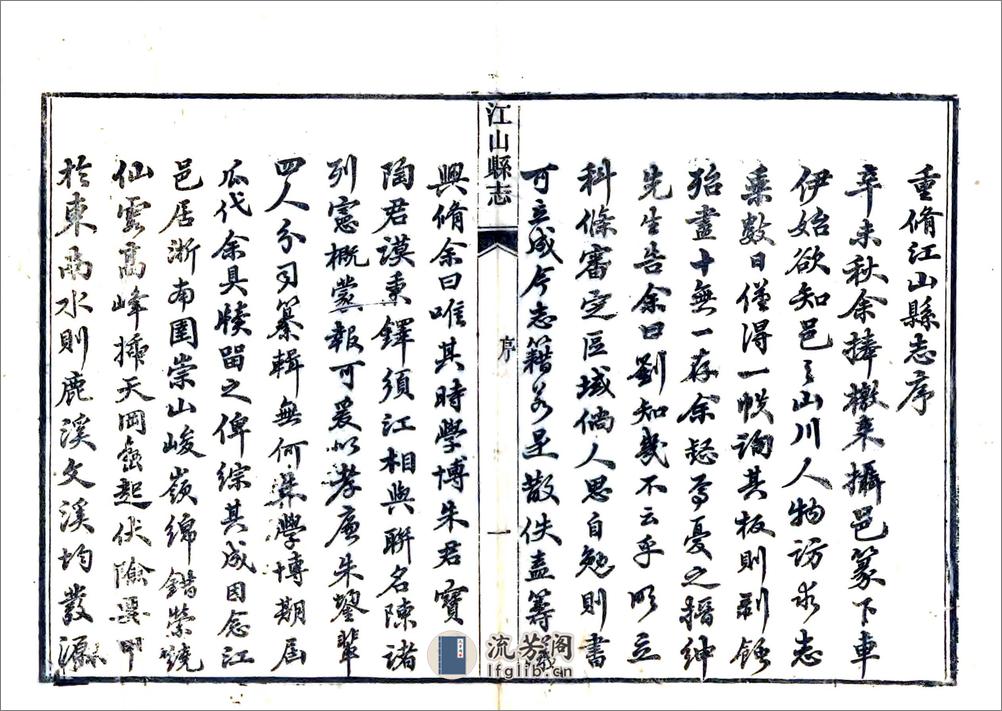 重脩江山縣志序
辛未秋余捧檄來攝邑篆下車
伊始欲知邑之山川人物訪求志
乘數日僅得一帙詢其板則剥蝕
殆盡十無一存余懃焉憂之搢紳
先生告余曰劉知幾不云乎明立
科條審定區域倘人思自勉則書
可立成今志籍若是散佚盍籌議
江山縣志
序
一
興脩余曰唯其時學博朱君寶
陶君謨秉鐸須江相與聯名陳諸
列憲概蒙報可爰以孝廉朱鑾輩
四人分司纂輯無何朱學博期屆
瓜代余具牘留之俾綜其成因念江
邑居浙南圉崇山峻嶺綿錯縈繞
仙雲高峰插天岡巒起伏險要甲
於東南水則鹿溪文溪均發源
流芳阁
lfglib.cn